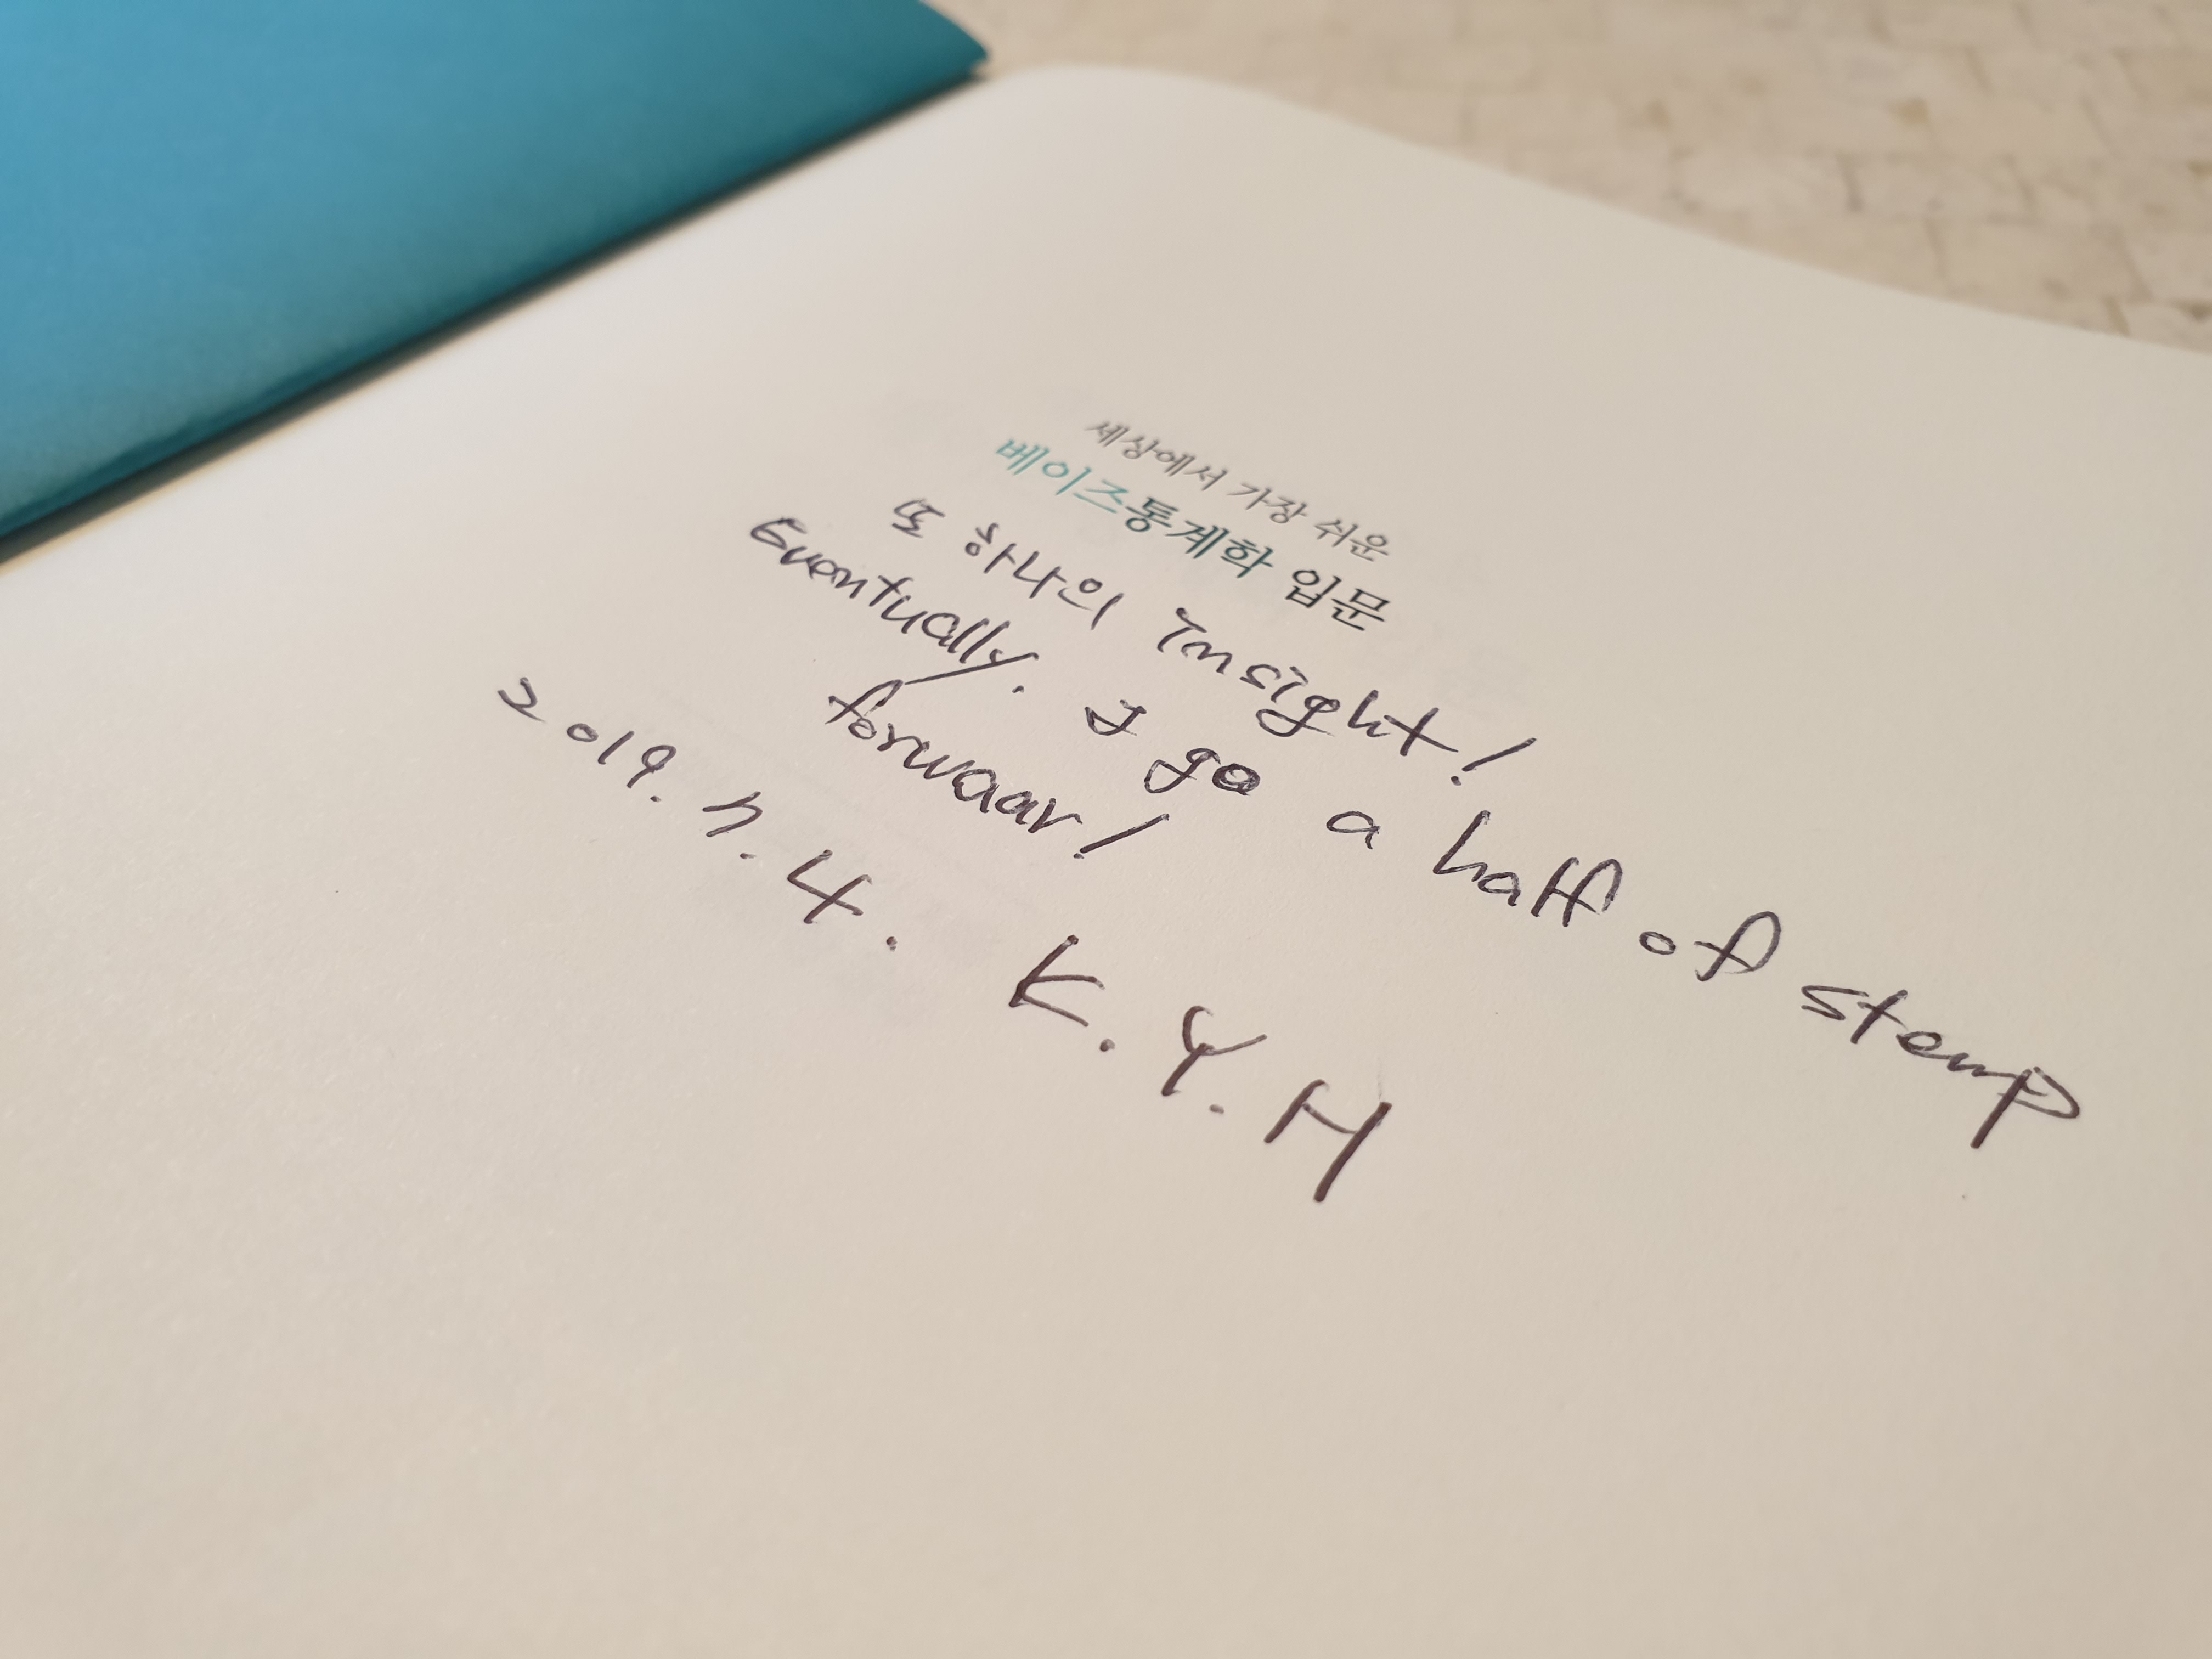 세상에서 가장 쉬운
베이즈통계학 입문
또 하나의 Insight!
Eventually. I go a half of stemp
forwaar!
2019. 7. 4. K. Y. H